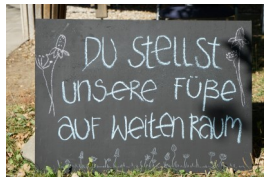 Du stellst
unsere Füße
auf weiten Raum